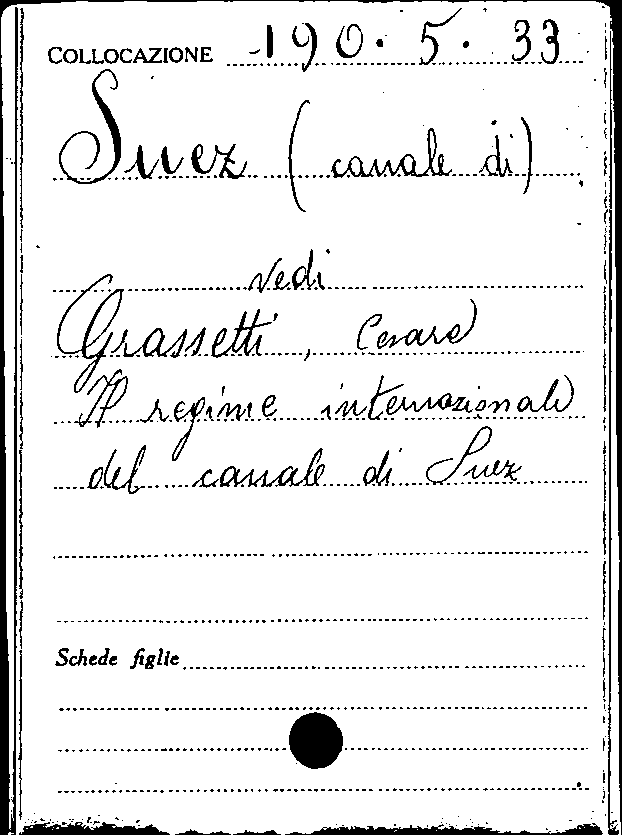 COLLOCAZIONE 190. 5. 33
Suez (canale di)
vedi
Grassetti, Cesare
Il regime internazionale
del canale di Suez
Schede figlie